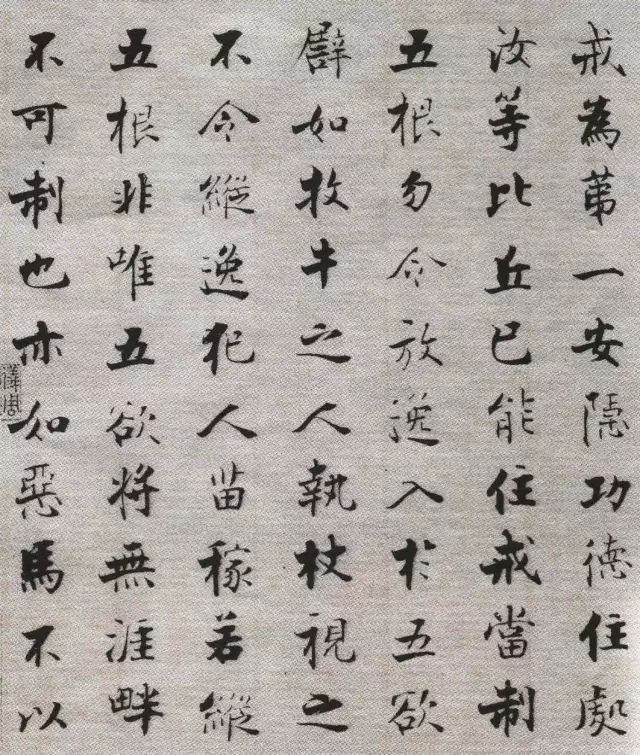 戒為第一安隱功德住處
汝等比丘已能住戒當制
五根勿令放逸入於五欲
譬如牧牛之人執杖視之
不令縱逸犯人苗稼若縱
五根非唯五欲將無涯畔
不可制也亦如惡馬不以